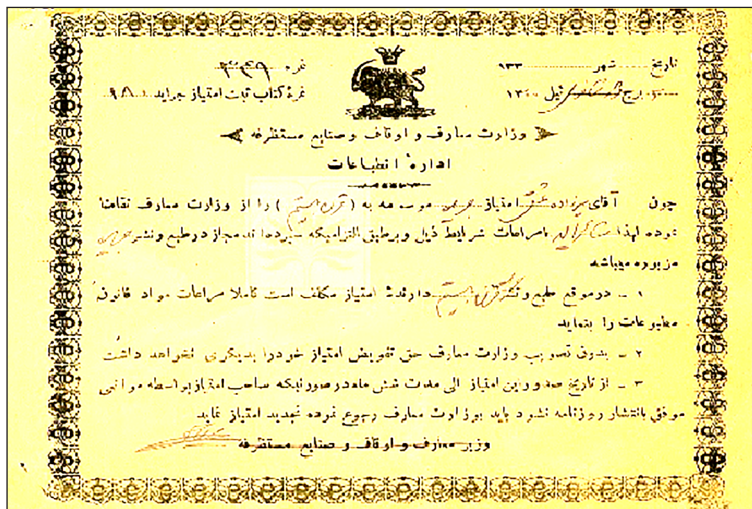 تاریخ شهر ۹۳۳ نمره ۳۳۴۹
برج ئیل ۱۳۰۰ نمرهٔ کتاب ثبت امتیاز جراید ۹۸
وزارت معارف و اوقاف و صنایع مستظرفه
ادارهٔ انطباعات
چون آقای میرزاده عشقی امتیاز جریده موسومه به ( قرن بیستم ) را از وزارت معارف تقاضا
نموده لهذا با مراعات شرایط ذیل و بر طبق التزامیکه سپرده‌اند مجاز در طبع و نشر جریده
مزبوره میباشد
۱ ـ در موقع طبع و نشر قرن بیستم دارندهٔ امتیاز مکلف است کاملا مراعات مواد قانون
مطبوعات را بنماید
۲ ـ بدون تصویب وزارت معارف حق تفویض امتیاز خود را بدیگری نخواهد داشت
۳ ـ از تاریخ صدور این امتیاز الی مدت شش ماه در صورتیکه صاحب امتیاز بواسطه موانعی
موفق بانتشار روزنامه نشود باید بوزارت معارف رجوع نموده تجدید امتیاز نماید
وزیر معارف و اوقاف و صنایع مستظرفه